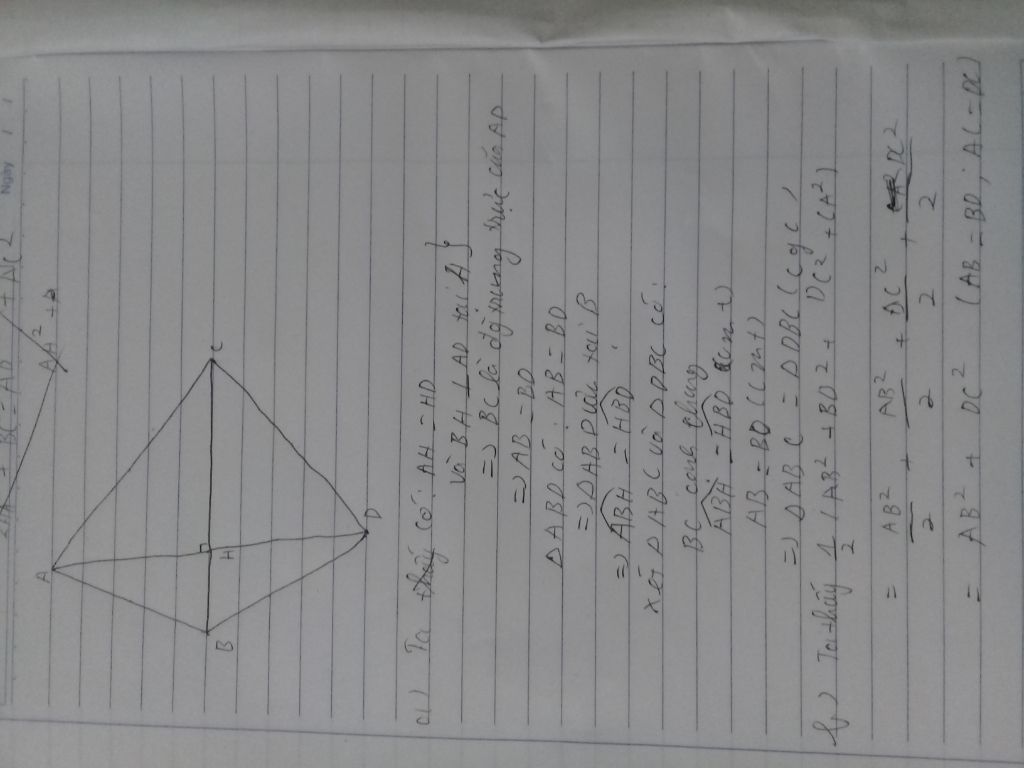 Ngày
BC = AD
+ AC 2
A
B
H
C
D
a) Ta thấy có: AH = HD
và BH ⊥ AD tại H }
=) BC là đg trung trực của AD
=) AB = BD
Δ ABD có: AB = BD
=) Δ ABD cân tại B
=) ABH = HBD
xét Δ ABC và Δ DBC có:
BC cạnh chung
ABH = HBD (cm t)
AB = BD (cmt)
=) Δ ABC = Δ DBC (cgc)
b) Ta thấy 1/2 (AB² + BD² + DC² + CA²)
= AB²/2 + AB²/2 + DC²/2 + DC²/2
= AB² + DC² (AB = BD; AC = DC)